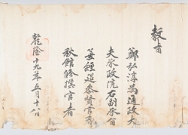 教旨
鄭弘淳爲通政大
夫承政院右副承旨
兼經筵參贊官春
秋館修撰官者
乾隆十九年五月十二日